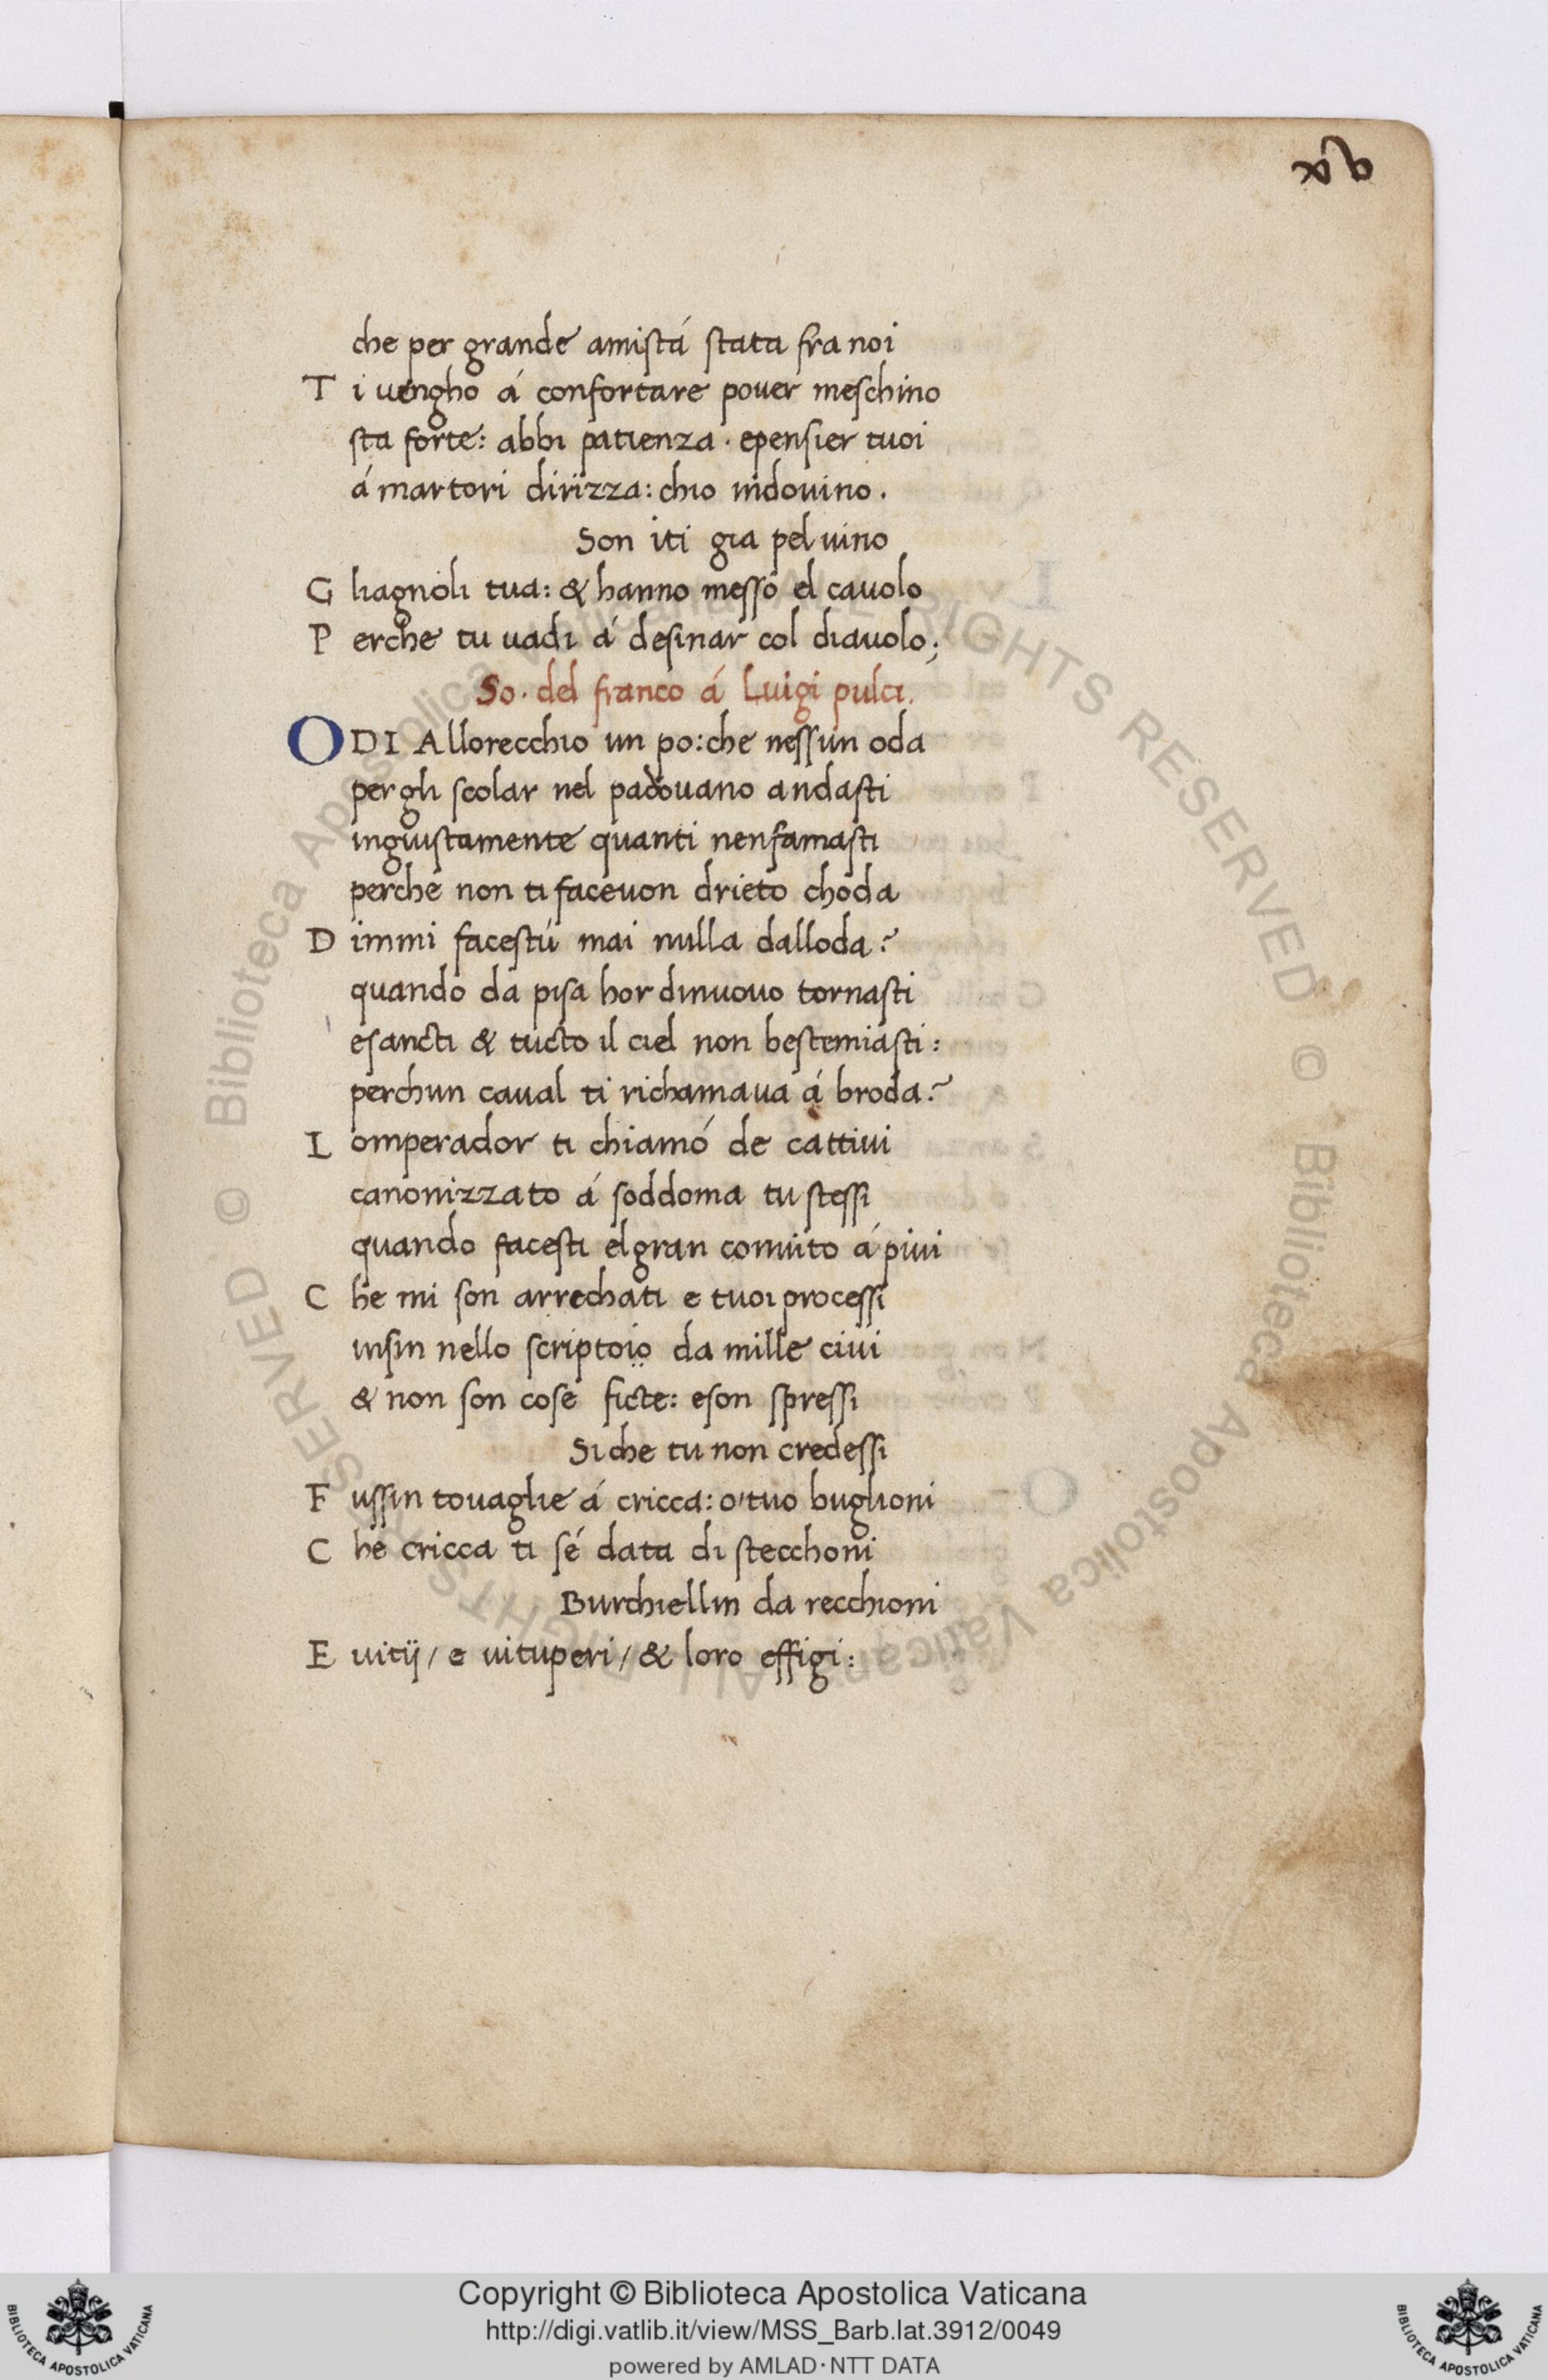 xlv
che per grande amistá stata fra noi
T i uengho á confortare pouer meschino
sta forte: abbi patienza · epensier tuoi
á martori dirizza: chio indouino .
Son iti gia pel uino
G liagnoli tua: & hanno messo el cauolo
P erche tu uadi á desinar col diauolo;
So · del franco á Luigi pulci.
ODI Allorecchio un po: che nessun oda
per gli scolar nel padouano andasti
ingiustamente quanti nenfamasti
perche non ti faceuon drieto choda
D immi facestú mai nulla dalloda?
quando da pisa hor dinuouo tornasti
esancti & tucto il ciel non bestemiasti:
perchun caual ti richamaua á broda?
L omperador ti chiamó de cattiui
canonizzato á soddoma tu stessi
quando facesti elgran conuito á piui
C he mi son arrechati e tuoi processi
insin nello scriptoio da mille ciui
& non son cose ficte: eson spressi
Si che tu non credessi
F ussin touaglie á cricca: o tuo buglioni
C he cricca ti sé data di stecchoni
Burchiellin da recchioni
E uitij / e uituperi / & loro effigi:
© Biblioteca Apostolica Vaticana ALL RIGHTS RESERVED © Biblioteca Apostolica Vaticana ALL RIGHTS RESERVED
BIBLIOTECA APOSTOLICA VATICANA
Copyright © Biblioteca Apostolica Vaticana
http://digi.vatlib.it/view/MSS_Barb.lat.3912/0049
powered by AMLAD·NTT DATA
BIBLIOTECA APOSTOLICA VATICANA